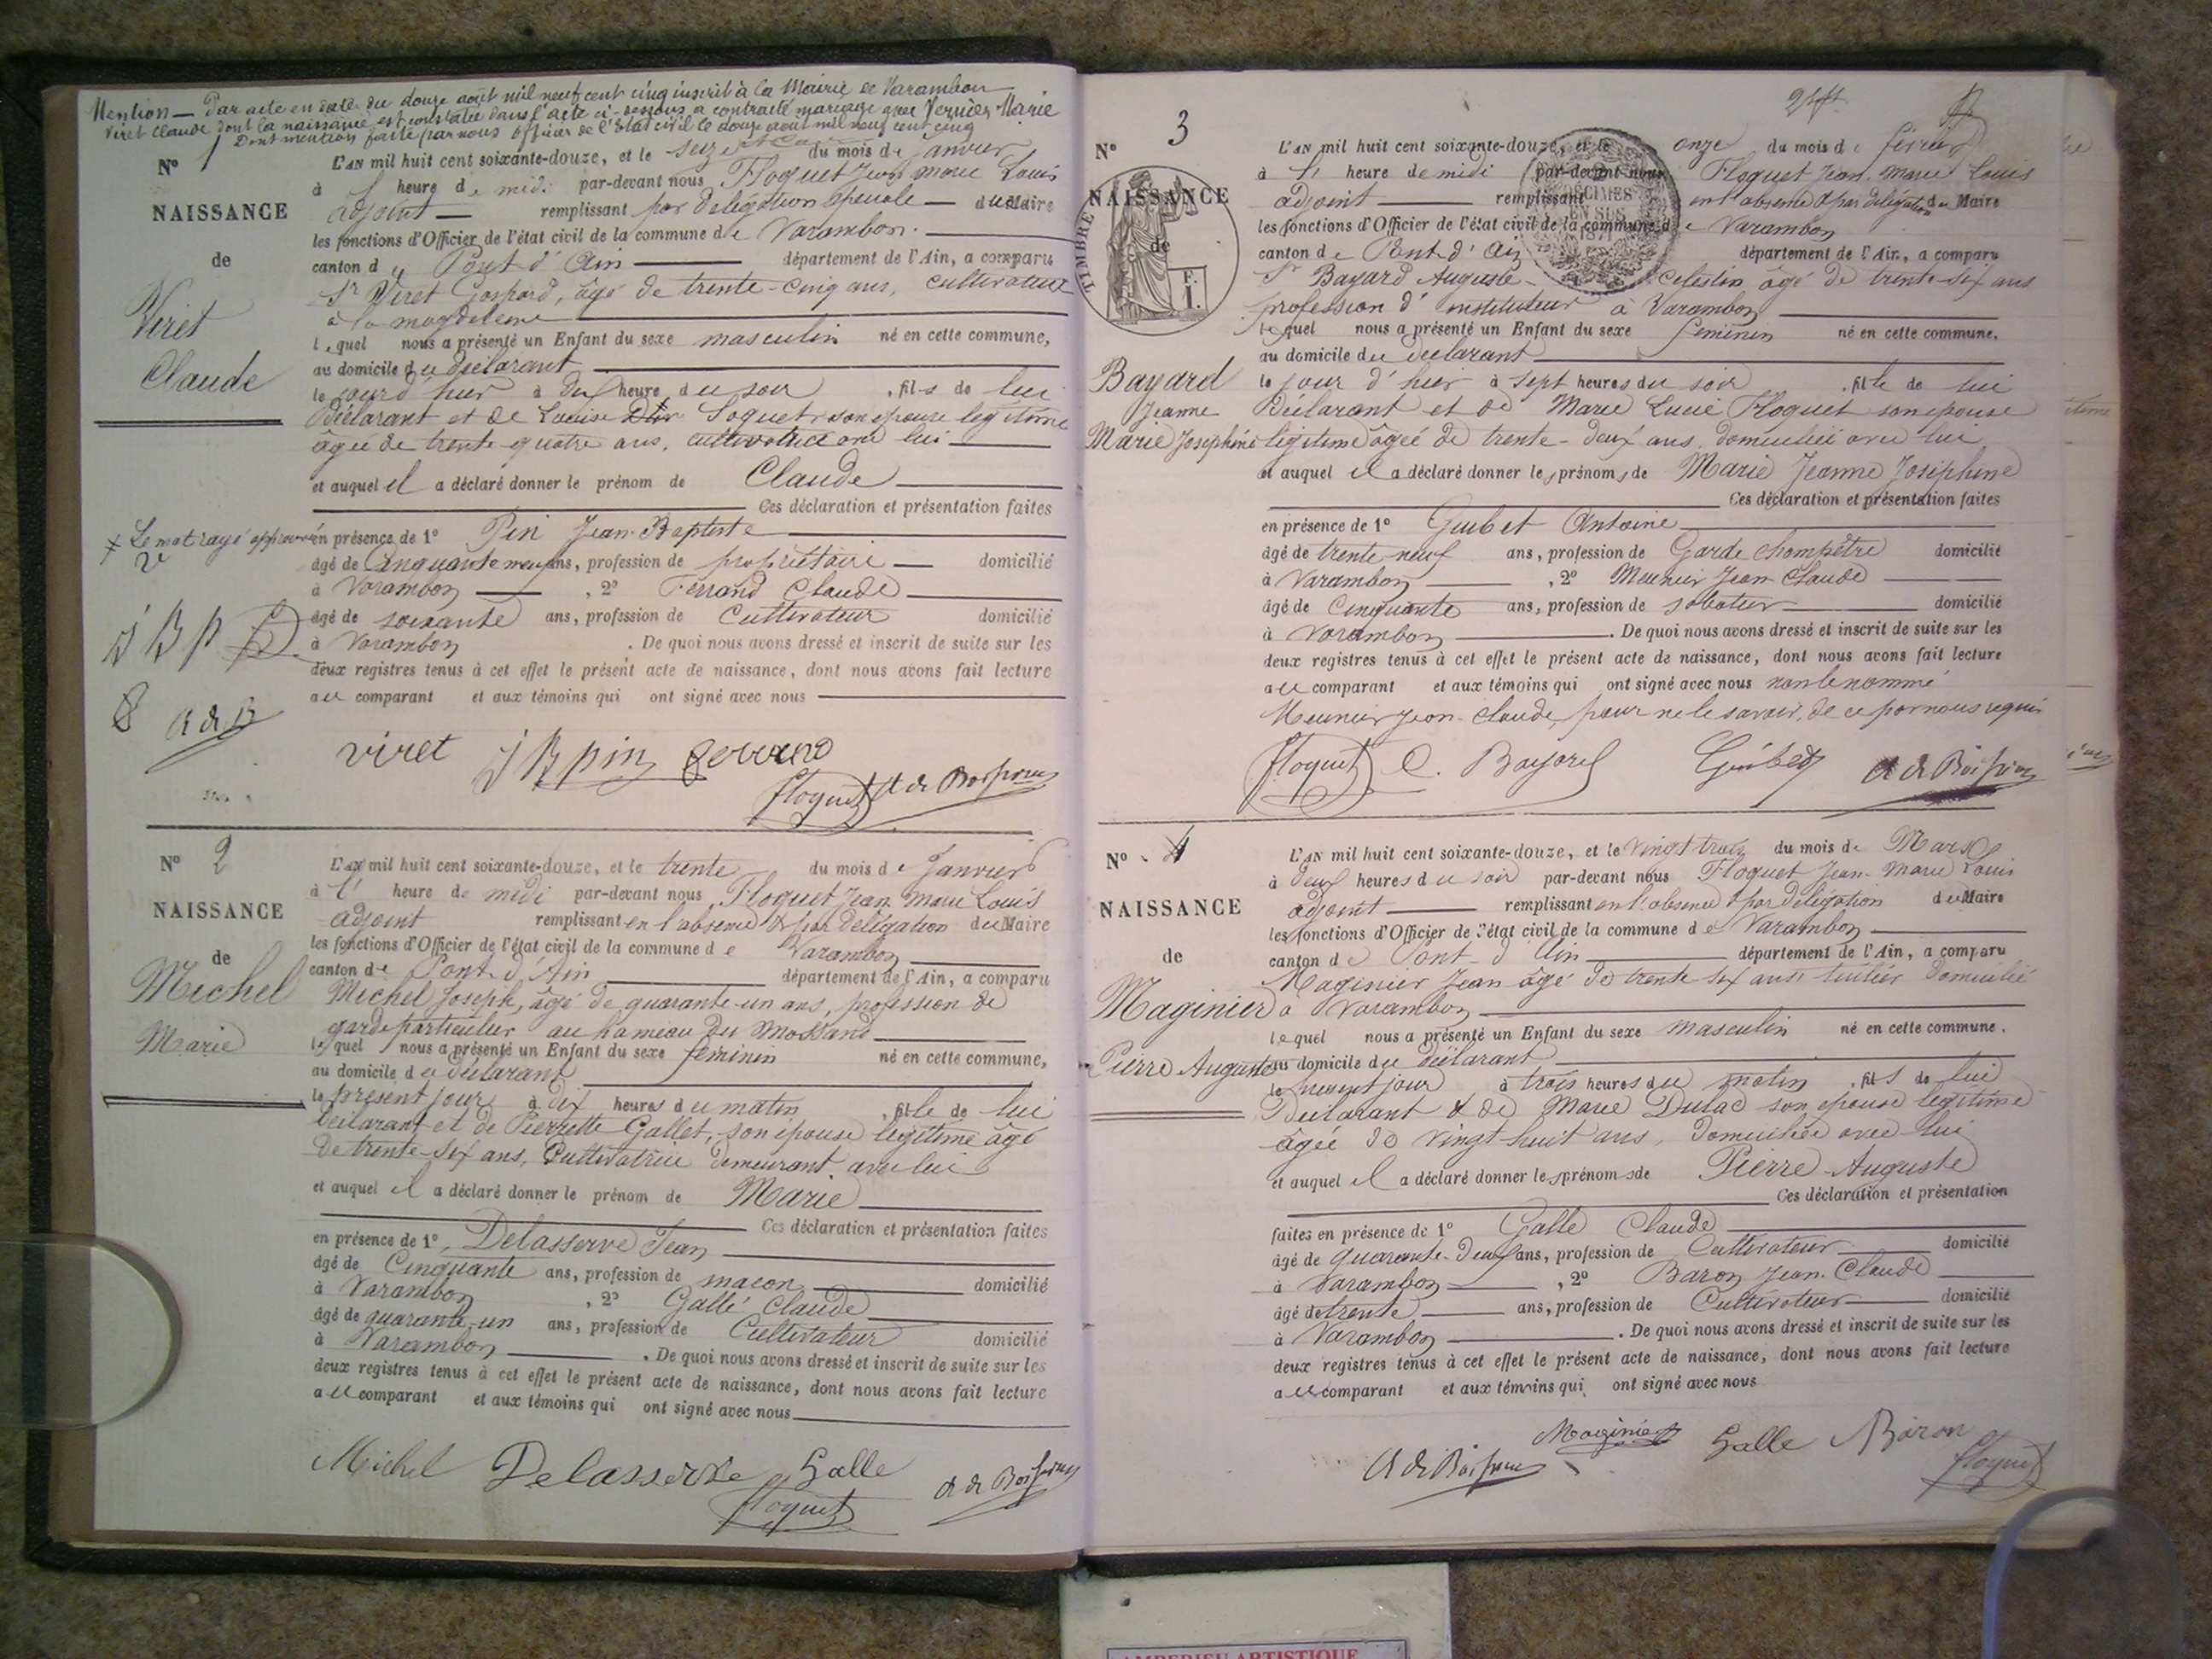 Mention — Par acte en date du douze août mil neuf cent cinq inscrit à la Mairie de Varambon
Viret Claude dont la naissance est constatée dans l'acte ci-dessous a contracté mariage avec Vernier Marie
Dont mention faite par nous Officier de l'Etat civil le douze août mil neuf cent cinq
N° 1
NAISSANCE
de
Viret
Claude
L'AN mil huit cent soixante-douze, et le seize du mois de janvier
à l' heure de midi par-devant nous Floquet Jean Marie Louis
adjoint — remplissant par délégation spéciale — du Maire
les fonctions d'Officier de l'état civil de la commune de Varambon
canton de Pont d'Ain département de l'Ain, a comparu
Sr Viret Gaspard, âgé de trente-cinq ans, cultivateur
à la magdeleine
lequel nous a présenté un Enfant du sexe masculin né en cette commune,
au domicile du déclarant
le jour d'hier à dix heure du soir , fils de lui
déclarant et de Louise Soquet son épouse légitime
âgée de trente quatre ans, cultivatrice avec lui
et auquel il a déclaré donner le prénom de Claude
Ces déclaration et présentation faites
Le mot rayé approuvé
en présence de 1° Pin Jean-Baptiste
âgé de Cinquante neuf ans, profession de propriétaire domicilié
à Varambon , 2° Ferrand Claude
âgé de soixante ans, profession de Cultivateur domicilié
à Varambon . De quoi nous avons dressé et inscrit de suite sur les
deux registres tenus à cet effet le présent acte de naissance, dont nous avons fait lecture
au comparant et aux témoins qui ont signé avec nous
J B P
A d B
viret J B pin ferrand
Floquet A de Boissieu
N° 2
NAISSANCE
de
Michel
Marie
L'AN mil huit cent soixante-douze, et le trente du mois de Janvier
à l' heure de midi par-devant nous Floquet Jean Marie Louis
adjoint remplissant en l'absence & par délégation du Maire
les fonctions d'Officier de l'état civil de la commune de Varambon
canton de Pont d'Ain département de l'Ain, a comparu
Michel Joseph, âgé de quarante-un ans, profession de
garde particulier au hameau du
lequel nous a présenté un Enfant du sexe féminin né en cette commune,
au domicile du déclarant
le présent jour à dix heures du matin , fille de lui
déclarant et de Pierrette Gallet, son épouse légitime âgé
de trente-six ans, Cultivatrice demeurant avec lui
et auquel il a déclaré donner le prénom de Marie
Ces déclaration et présentation faites
en présence de 1° Delasserve Jean
âgé de Cinquante ans, profession de maçon domicilié
à Varambon , 2° Gallé Claude
âgé de quarante-un ans, profession de Cultivateur domicilié
à Varambon . De quoi nous avons dressé et inscrit de suite sur les
deux registres tenus à cet effet le présent acte de naissance, dont nous avons fait lecture
au comparant et aux témoins qui ont signé avec nous
Michel Delasserve Galle
Floquet A de Boissieu
N° 3
NAISSANCE
de
TIMBRE
Bayard
Jeanne
Marie Joséphine
L'AN mil huit cent soixante-douze, et le onze du mois de février
à l' heure de midi par-devant nous Floquet Jean Marie Louis
adjoint remplissant en l'absence & par délégation du Maire
les fonctions d'Officier de l'état civil de la commune de Varambon
canton de Pont d'Ain département de l'Ain, a comparu
Sr Bayard Auguste Célestin âgé de trente-six ans
profession d'instituteur à Varambon
lequel nous a présenté un Enfant du sexe féminin né en cette commune,
au domicile du déclarant
le jour d'hier à sept heures du soir , fille de lui
déclarant et de Marie Lucie Floquet son épouse
légitime âgée de trente-deux ans, domiciliée avec lui
et auquel il a déclaré donner les prénoms de Marie Jeanne Joséphine
Ces déclaration et présentation faites
en présence de 1° Guibet Antoine
âgé de trente-neuf ans, profession de Garde champêtre domicilié
à Varambon , 2° Meunier Jean-Claude
âgé de Cinquante ans, profession de sabotier domicilié
à Varambon . De quoi nous avons dressé et inscrit de suite sur les
deux registres tenus à cet effet le présent acte de naissance, dont nous avons fait lecture
au comparant et aux témoins qui ont signé avec nous non le nommé
Meunier Jean-Claude, pour ne le savoir, de ce par nous requis
Floquet C. Bayard Guibet A de Boissieu
N° 4
NAISSANCE
de
Maginier
Pierre Auguste
L'AN mil huit cent soixante-douze, et le vingt trois du mois de Mars
à deux heures du soir par-devant nous Floquet Jean-Marie Louis
adjoint remplissant en l'absence & par délégation du Maire
les fonctions d'Officier de l'état civil de la commune de Varambon
canton de Pont-d'Ain département de l'Ain, a comparu
Maginier Jean âgé de trente six ans tuilier domicilié
à Varambon
lequel nous a présenté un Enfant du sexe masculin né en cette commune.
au domicile du déclarant
le présent jour à trois heures du matin , fils de lui
Déclarant & de Marie Dulac son épouse légitime
âgée de vingt-huit ans, domiciliée avec lui
et auquel il a déclaré donner les prénoms de Pierre-Auguste
Ces déclaration et présentation
faites en présence de 1° Galle Claude
âgé de quarante-deux ans, profession de Cultivateur domicilié
à Varambon , 2° Baron Jean-Claude
âgé de trente ans, profession de Cultivateur domicilié
à Varambon . De quoi nous avons dressé et inscrit de suite sur les
deux registres tenus à cet effet le présent acte de naissance, dont nous avons fait lecture
au comparant et aux témoins qui ont signé avec nous
Maginier Galle Baron
A de Boissieu Floquet
AMBERIEU ARTISTIQUE